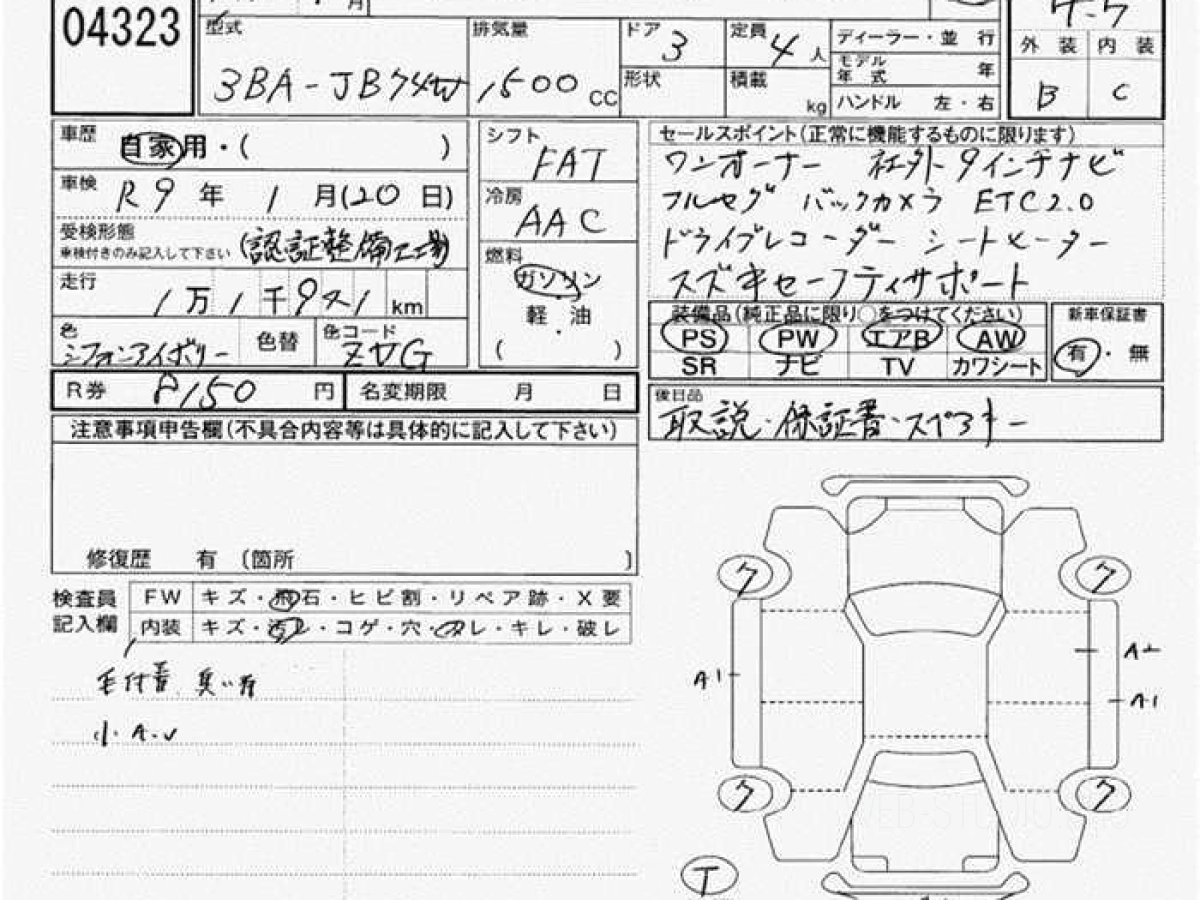 04323
月
4.5
型式 3BA-JB74W
排気量 1500 CC
ドア 3
定員 4 人
形状
積載 kg
ディーラー・並 行
モデル年式 年
ハンドル 左・右
外 装 内 装
B C
車歴 自家用・( )
車検 R9年 1月(20日)
受検形態 車検付きのみ記入して下さい (認証整備工場)
走行 1万1千9 km
色 シフォンアイボリー 色替 色コード ZVG
シフト FAT
冷房 AAC
燃料 ガソリン
軽・油
( ・ )
セールスポイント(正常に機能するものに限ります)
ワンオーナー 社外9インチナビ
フルセグ バックカメラ ETC2.0
ドライブレコーダー シートヒーター
スズキセーフティサポート
装備品(純正品に限り○をつけてください)
PS PW エアB AW
SR ナビ TV カワシート
新車保証書
有・無
R券 8150 円 名変期限 月 日
後日品
取説・保証書・スペアキー
注意事項申告欄(不具合内容等は具体的に記入して下さい)
修復歴 有 〔箇所 〕
検査員記入欄
FW キズ・飛石・ヒビ割・リペア跡・X要
内装 キズ・汚レ・コゲ・穴・スレ・キレ・破レ
毛付着 臭い有
小A.U
ク ク
A1 A2
A1
ク ク
T